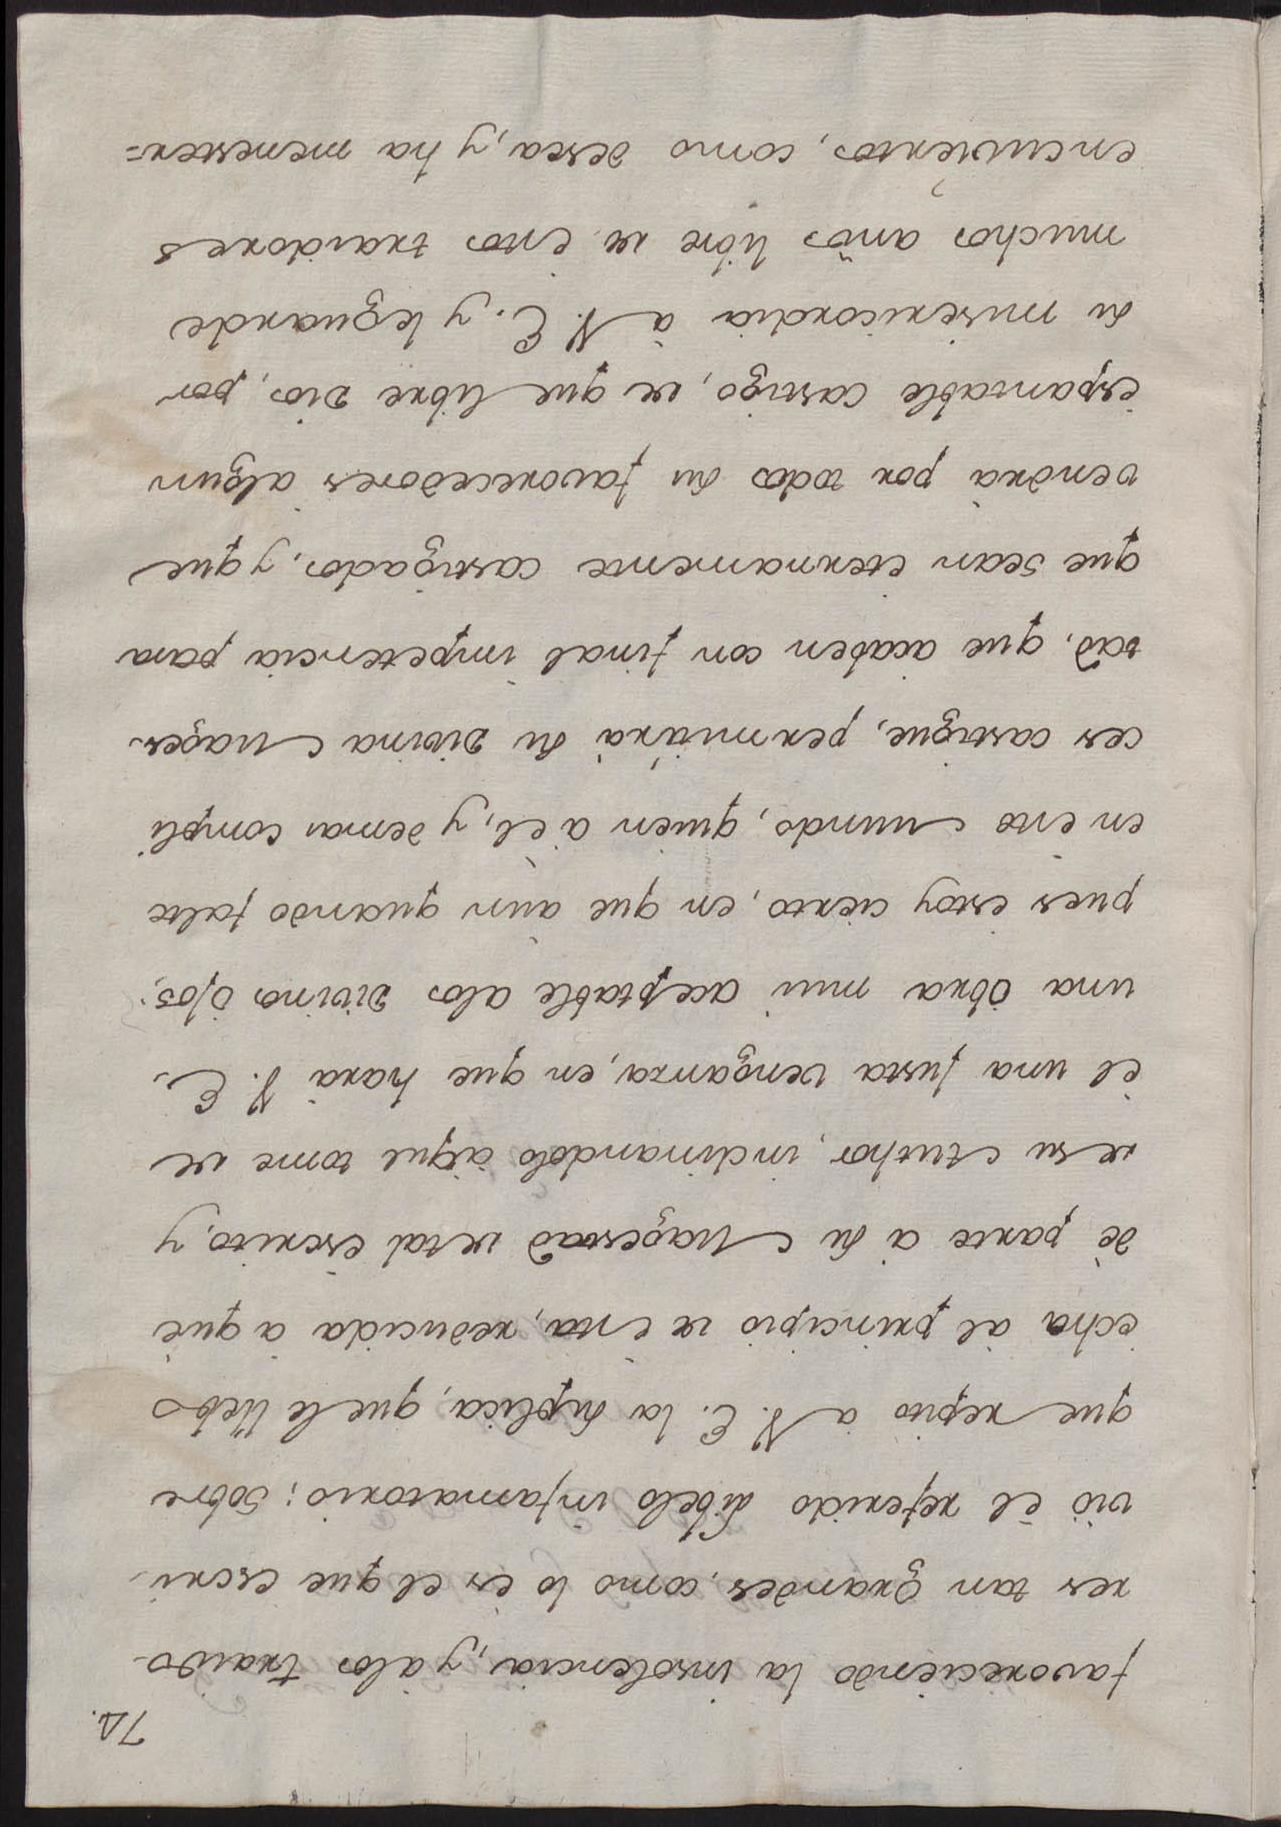 74.
favoreciendo la insolencia, y âlos traido-
res tan grandes, como lo ês el que escri-
viò êl referido libelo infamatorio; Sobre
que repito à V. E. la suplica, que le llebo
êcha âl principio de êsta, reducida à què
dè parte à su Magestad de tal êscrito, y
de su Author, inclinandolo âque tome de
êl una justa venganza, en que harà V. E.
una ôbra mui aceptable alos Divinos ôjos;
pues êstoy cierto, en que aun quando falte
en êste mundo, quien à èl, y demas compli
ces castigue, permitirà su Divina Mages-
tad, que acaben con final impetencia para
que Sean êternamente castigados, y que
vendrà por todos su favorecedores algun
êspantable castigo, de que libre Dios, por
su misericordia à V. E. y leguarde
muchos años libre de êstos traidores
encuviertos, como desea, y ha menester=